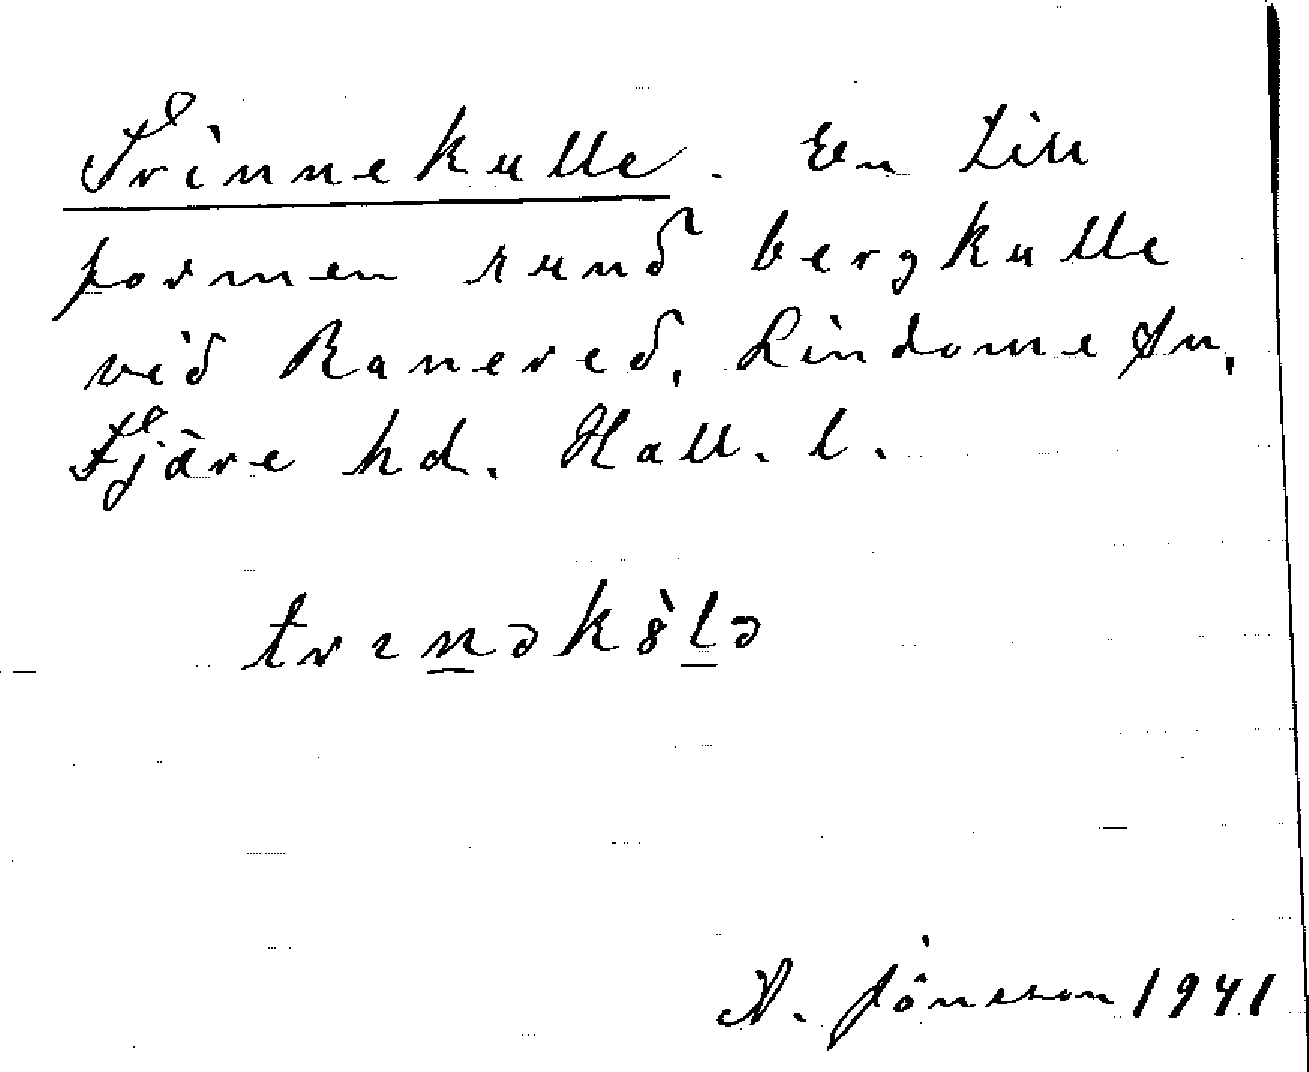 Trinnekulle. En till
formen rund bergkulle
vid Ranered, Lindome sn,
Fjäre hd. Hall. l.
trɩnəkȣ̀lə
A. Jönsson 1941